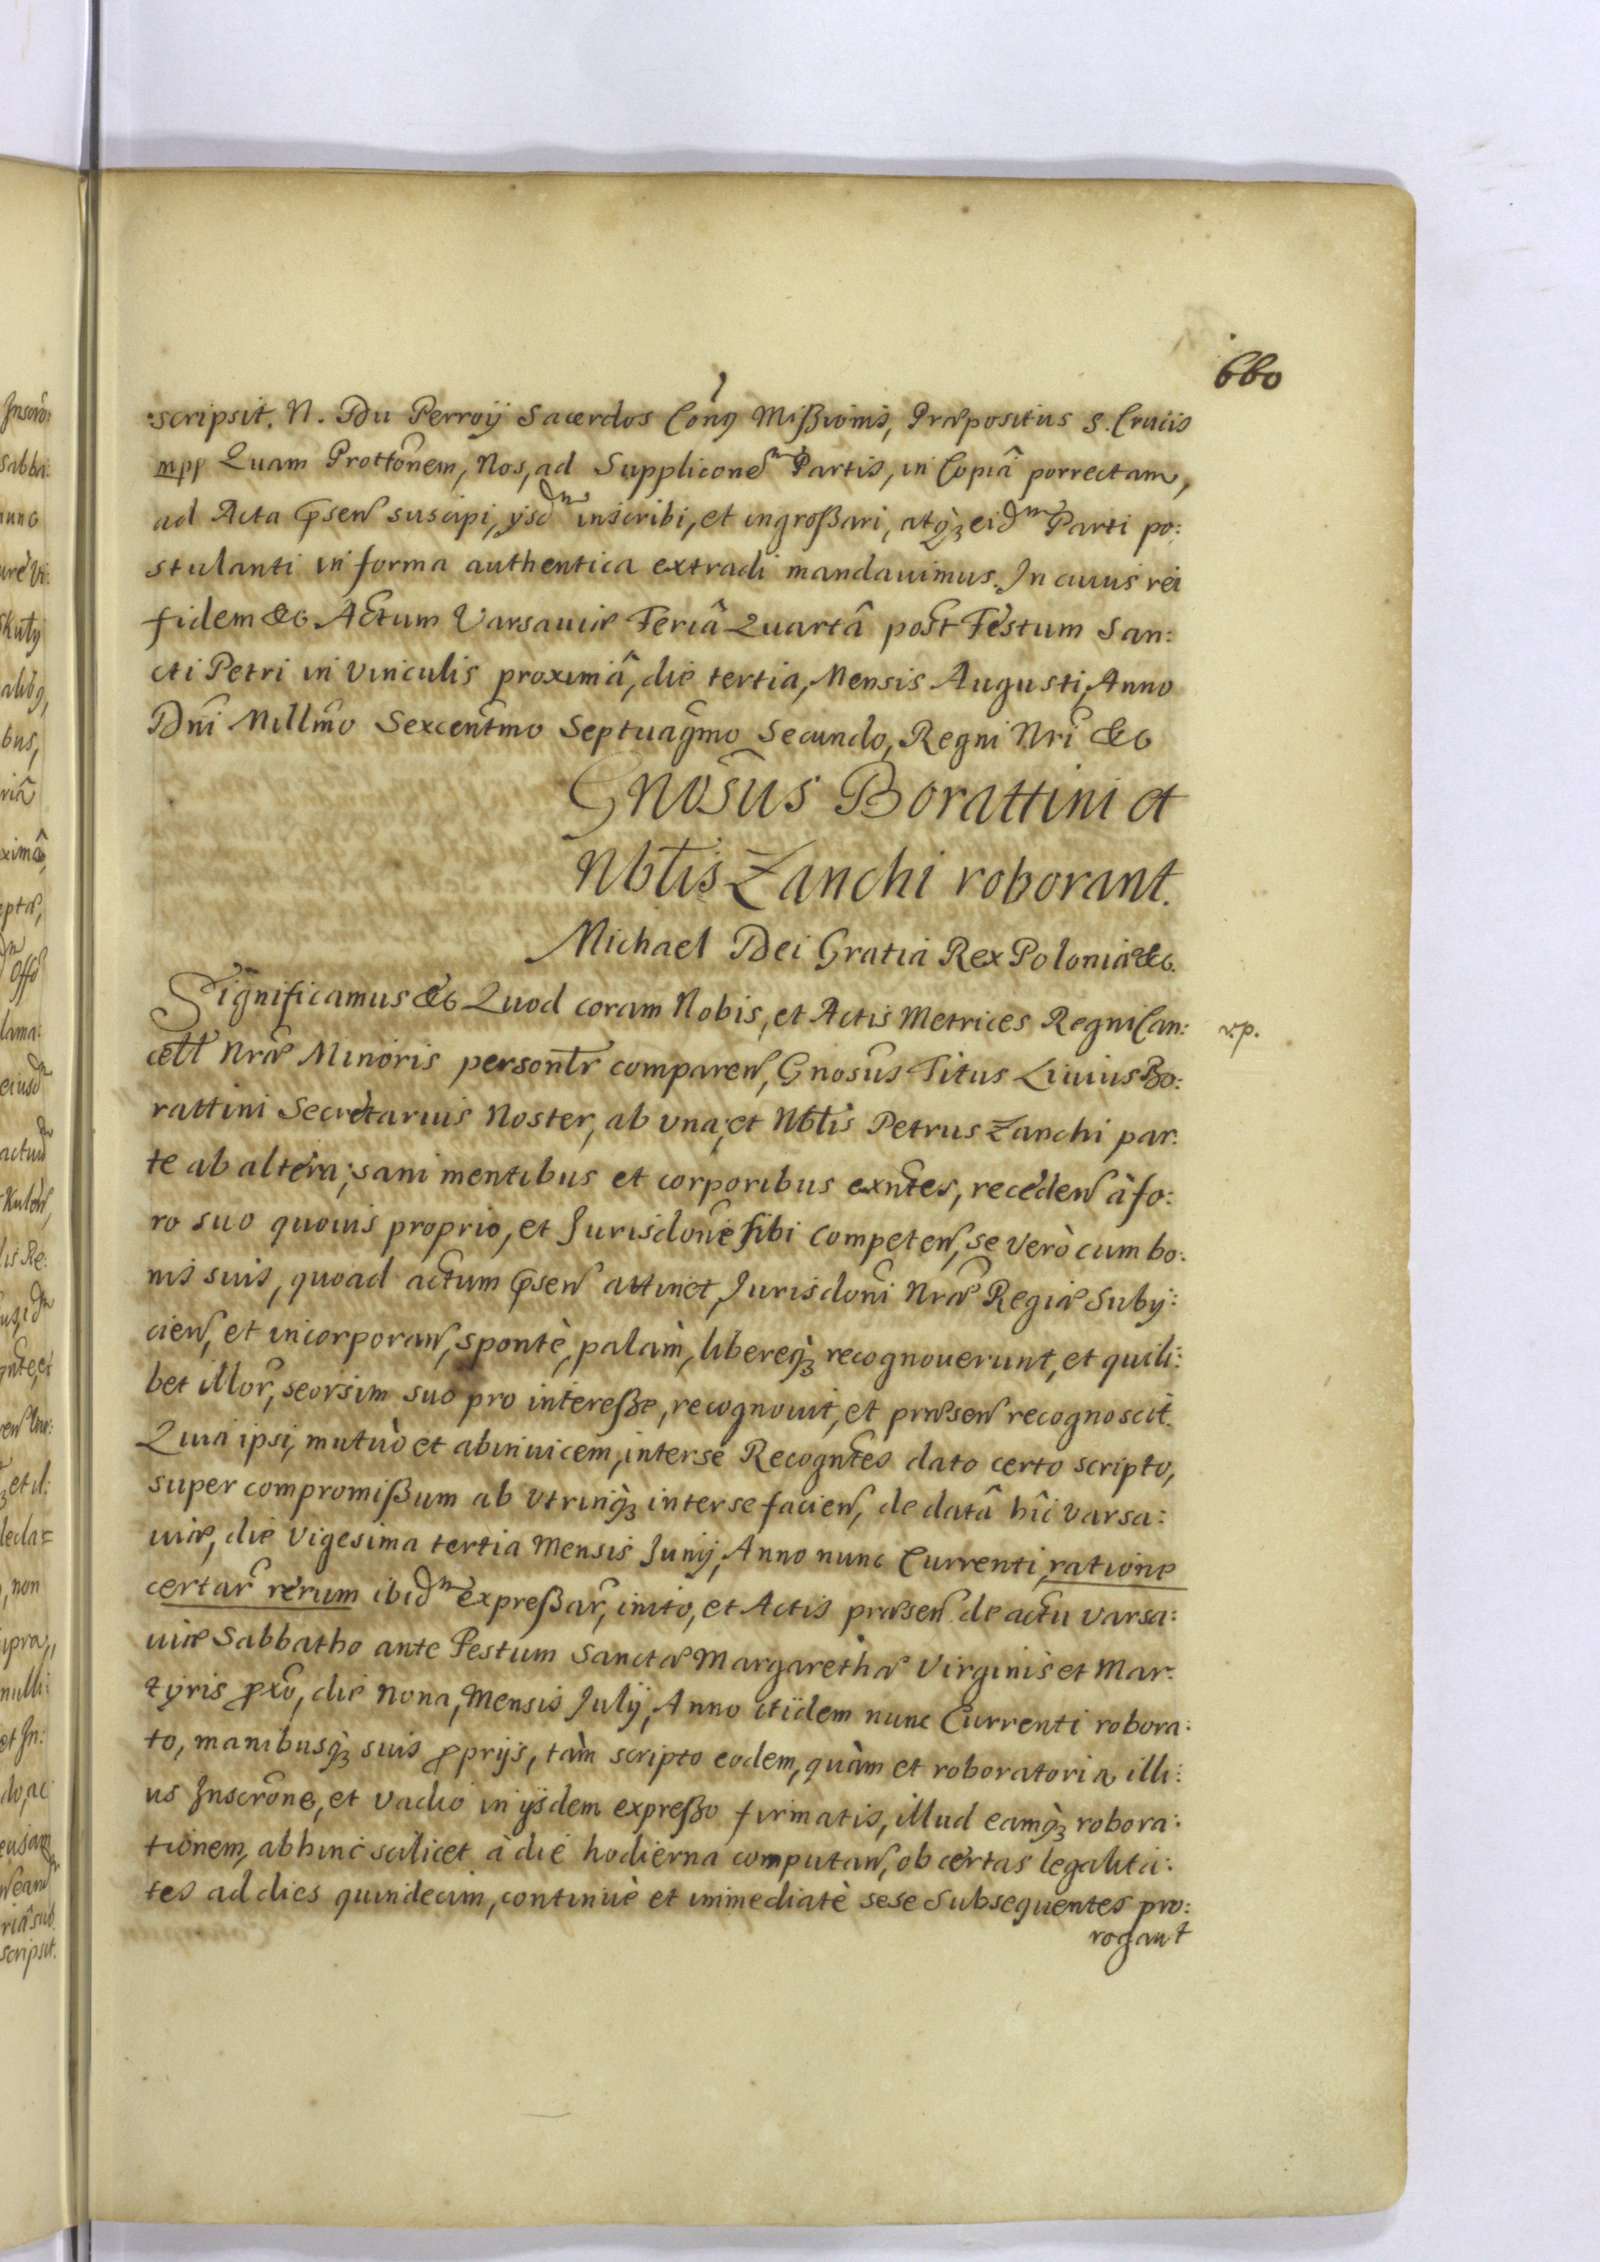 660
scripsit. N. Du Perroÿ Sacerdos Con̄g Mißionis, Præpositus S. Crucis
mpp Quam Prottōnem, Nos, ad Suppliconē Partis, in Copiâ porrectam,
ad Acta p̄sen̄ suscipi, ÿsdm inscribi, et ingroßari, atq̀ꝫ eidm Parti po:
stulanti in forma authentica extradi mandauimus. In cuius rei
fidem &c. Actum Varsauiæ Feriâ Quartâ post Festum San:
cti Petri in Vinculis proximâ, die tertia, Mensis Augusti, Anno
Dn̄i Millmō Sexcentmō Septuagmō Secundo, Regni Nr̄i &c
Gnōsus Borattini et
Nbt̄is Zanchi roborant.
Michael Dei Gratia Rex Poloniæ &c.
Significamus &c Quod coram Nobis, et Actis Metrices Regni Can: r.p.
cell̄ Nr̄æ Minoris personl̄r comparen̄, Gnosūs Titus Liuius Bo:
rattini Secretarius Noster, ab vna, et Nbt̄is Petrus Zanchi par:
te ab altera; sani mentibus et corporibus exn̄tes, receden̄ à fo:
ro suo quouis proprio, et Jurisdonē sibi Competen̄, se verò cum bo:
nis suis, quoad actum p̄sen̄ attinet, Jurisdonī Nr̄æ Regiæ Subÿ:
cien̄, et incorporan̄, spontè, palàm, libereq̀ꝫ recognouerunt, et quili:
bet illor̄, seorsim suo pro intereße, recognouit, et præsen̄ recognoscit.
Quia ipsi, mutuò et abinuicem, inter se Recogn̄tes dato certo scripto,
super compromißum ab vtrinq̀ꝫ inter se facien̄, de datâ hîc Varsa:
uiæ, die Vigesima tertia Mensis Junÿ, Anno nunc Currenti, ratione
certar̄ rerum ibidm expreßar̄, inito, et Actis præsen̄ de actu Varsa:
uiæ Sabbatho ante Festum Sanctæ Margarethæ Virginis et Mar:
tÿris p̄xō, die Nona, Mensis Julÿ, Anno itidem nunc Currenti robora:
to, manibusq̀ꝫ suis p̄prÿs, tàm scripto eodem, quàm et roboratoria illi:
us Inscrōne, et vadio in ÿsdem expreßo firmatis, illud eamq̀ꝫ robora:
tionem, abhinc scilicet à die hodierna computan̄, ob certas legalita:
tes ad dies quindecim, continuè et immediatè sese Subsequentes pro:
rogant